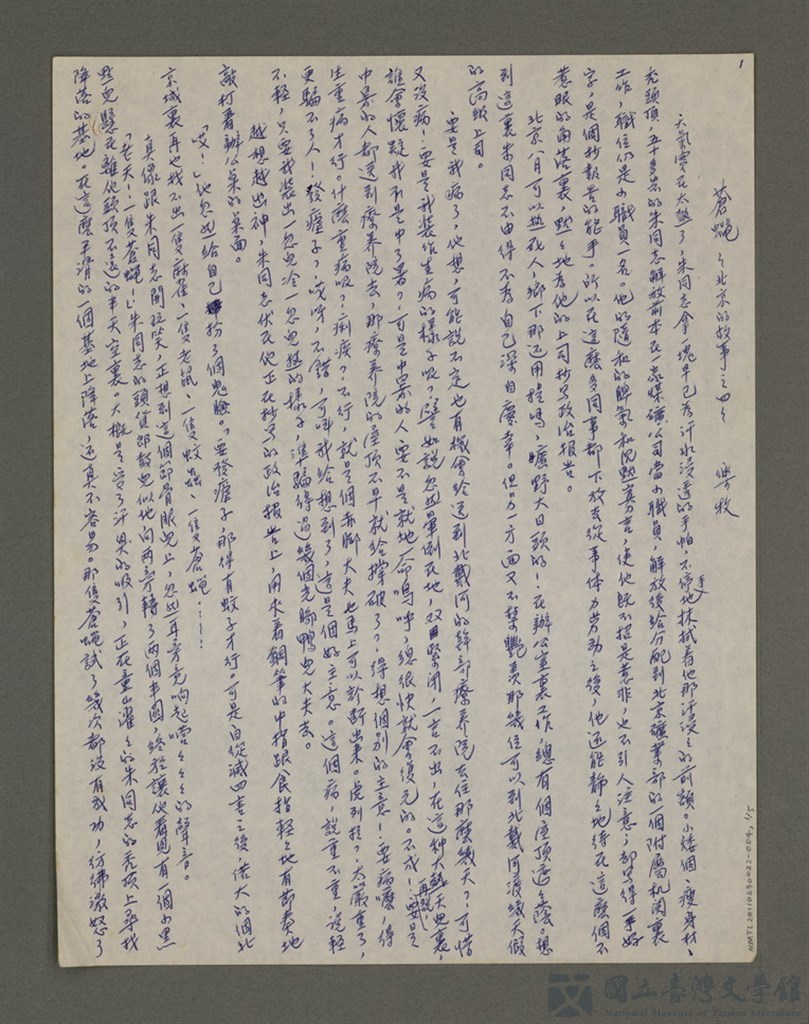 1
蒼蠅 〈北京的故事之四〉 樂牧
天氣實在太熱了,朱同志拿一塊早已為汗水浸透的手帕,不停地抹拭着他那活汲汲的前額。小矮個、瘦身材、
禿頭頂,五十多歲的朱同志解放前本在一家煤礦公司當小職員,解放後給分配到北京礦業部的一個附屬机関裏
工作,職位仍是小職員一名。他的隨和的脾氣和沉默寡言,使他既不招是惹非,也不引人注意;却寫得一手好
字,是個抄報告的能手。所以在這麼多同事都下放去從事体力劳动之後,他还能靜靜地待在這麼個不
惹眼的角落裏,默默地為他的上司抄寫政治報告。
北京八月可以熱死人,鄉下那还用提嗎,曠野大日頭的!在辦公室裏工作,總有個屋頂遮遮蔭。想
到這裏朱同志不由得不為自己深自慶幸。但另一方面又不禁艷羡那幾位可以到北戴河渡幾天假
的高級上司。
要是我病了,他想,可能說不定也有機會給送到北戴河的幹部療养院去住那麼幾天?可惜
又沒病!要是我裝作生病的樣子呢?譬如說忽然暈倒在地,双目緊闭,一言不出,在這种大熱天地裏,
誰會懷疑我不是中了暑?可是中暑的人要不是就地一命嗚呼,總很快就會復元的。不成!再說,要是
中暑的人都送到療养院去,那療养院的屋頂不早就給撑破了?得想個別的主意!要病嚒,得
生重病才行。什麼重病呢?痢疾?不行,就是個赤脚大夫也馬上可以診斷出來。虎列拉?太嚴重了,
更騙不了人!發瘧子?哎呀,不錯,可叫我給想到了,這是個好主意。這個病,說重不重,說輕
不輕,只要我裝出一忽兒冷一忽兒熱的樣子,準騙得過幾個光脚鴨兒大夫去。
越想越出神,朱同志伏在他正在抄寫的政治報告上,用夾着鋼筆的中指跟食指輕輕地有節奏地
敲打着辦公桌的桌面。
「哎!」他忽然給自己扮了個鬼臉。「要發瘧子,那得有蚊子才行。可是自從滅四害之後,偌大的個北
京城裏再也找不出一隻麻雀、一隻老鼠、一隻蚊蟲、一隻蒼蠅……!
真像跟朱同志開玩笑,正想到這個節骨眼兒上,忽然耳旁竟响起嗡嗡嗡的聲音。
「老天!一隻蒼蠅!」朱同志的頭貨郎鼓兒似地向兩旁轉了兩個半圈,終於讓他看見有一個小黑
點兒懸在離他頭頂不遠的半天空裏。大概是受了汗臭的吸引,正在童山濯濯的朱同志的禿頂上尋找
降落的基地。在這麼平滑的一個基地上降落,还真不容易。那隻蒼蠅試了幾次都沒有成功,彷彿激怒了
NMTL20110290022-004, 1/5
國立臺灣文學館
National Museum of Taiwan Literature